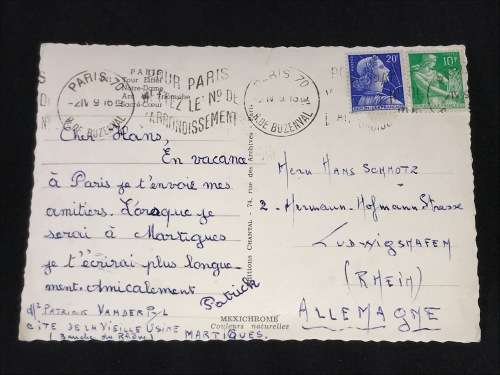 PARIS
Tour Eiffel
Notre-Dame
Arc de Triomphe
Sacré-Cœur
PARIS 70
-2IV 9-16
R. DE BUZENVAL
POUR PARIS
LE N° DE
L'ARRONDISSEMENT
PARIS 70
R. DE BUZENVAL
20F
10F
Cher Hans,
En vacance
à Paris je t'envoie mes
amitiers. Lorsque je
serai à Martigues
je t'écrirai plus longue-
ment. Amicalement
Patrick
Mr PATRICK VANDERPYL
CITE DE LA VIEILLE USINE
(Bouche du Rhône) MARTIGUES.
Editions CHANTAL - 74, rue des Archives
MEXICHROME
Couleurs naturelles
Herrn HANS SCHMOTZ
2 - Hermann-Hofmann Strasse
LUDWIGSHAFEM
(RHEIM)
ALLEMAGNE